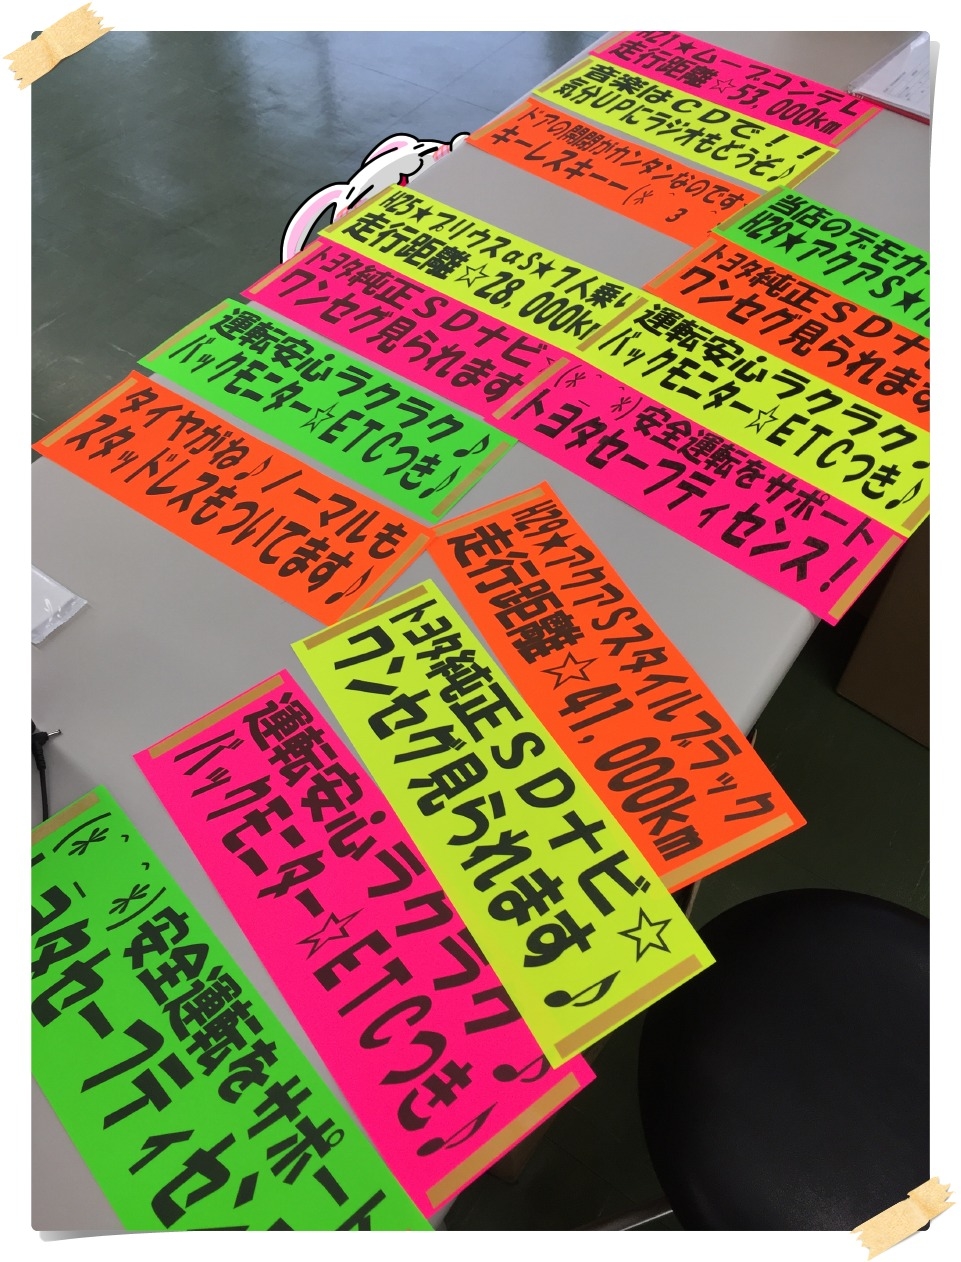 H21★ムーブコンテL
走行距離☆53,000km
音楽はCDで!!
気分UPにラジオもどうぞ♪
ドアの開閉がカンタンなのです
キーレスキー
H25★プリウスαS★7人乗い
走行距離☆28,000km
トヨタ純正SDナビ
ワンセグ見られます
運転安心ラクラク♪
バックモニター☆ETCつき♪
タイヤがね♪ノーマルも
スタッドレスもついてます♪
当店のデモカー
H29★アクアS★
トヨタ純正SDナ
ワンセグ見られます
運転安心ラクラク♪
バックモニター☆ETCつき♪
安全運転をサポート
トヨタセーフティセンス!
H29★アクアSスタイルブラック
走行距離☆41,000km
トヨタ純正SDナビ☆
ワンセグ見られます♪
運転安心ラクラク♪
バックモニター☆ETCつき♪
安全運転をサポート
ヨタセーフティセン